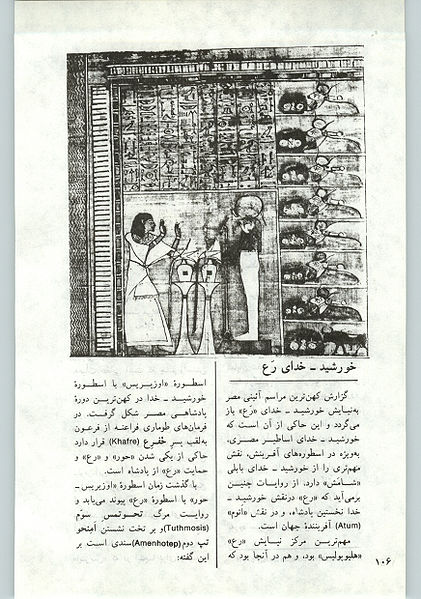 خورشید ـ خدای رَع
گزارش کهن‌ترین مراسم آئینی مصر
به‌نیایش خورشیـد ـ خدای «رَع» باز
می‌گردد و این حاکی از آن است که
خورشید ـ خدای اساطیر مصری،
به‌ویژه در اسطوره‌های آفرینش، نقش
مهم‌تری را از خورشید ـ خدای بابلی
«شامَش» دارد. از روایـات چنیـن
برمی‌آید که «رع» درنقش خورشید ـ
خدا نخستین پادشاه، و در نقش «آتوم»
(Atum) آفریننـدهٔ جهان است.
مهم‌تریـن مرکز نیـایش «رع»
«هلیوپولیس» بود، و هم در آنجا بود که
اسطورهٔ «اوزیریس» با اسطورهٔ
خورشیـد ـ خدا در کهن‌ترین دورهٔ
پادشاهـی مصـر شکل گرفـت. در
فرمان‌های طوماری فراعنـه از فرعون
به‌لقب پسر خَفرع (Khafre) قرار دارد
حاکی از یکی شدن «حور» و «رع» و
حمایت «رع» از پادشاه است.
با گذشت زمان اسطورهٔ «اوزیریس ـ
حور» با اسطورهٔ «رع» پیوند می‌یابد و
روایت مرگ تحـوتمس سـوّم
(Tuthmosis) و بر تخت نشستن آمِنحو
تپ دوم (Amenhotep) سندی است بر
این گفته:
۱۰۶